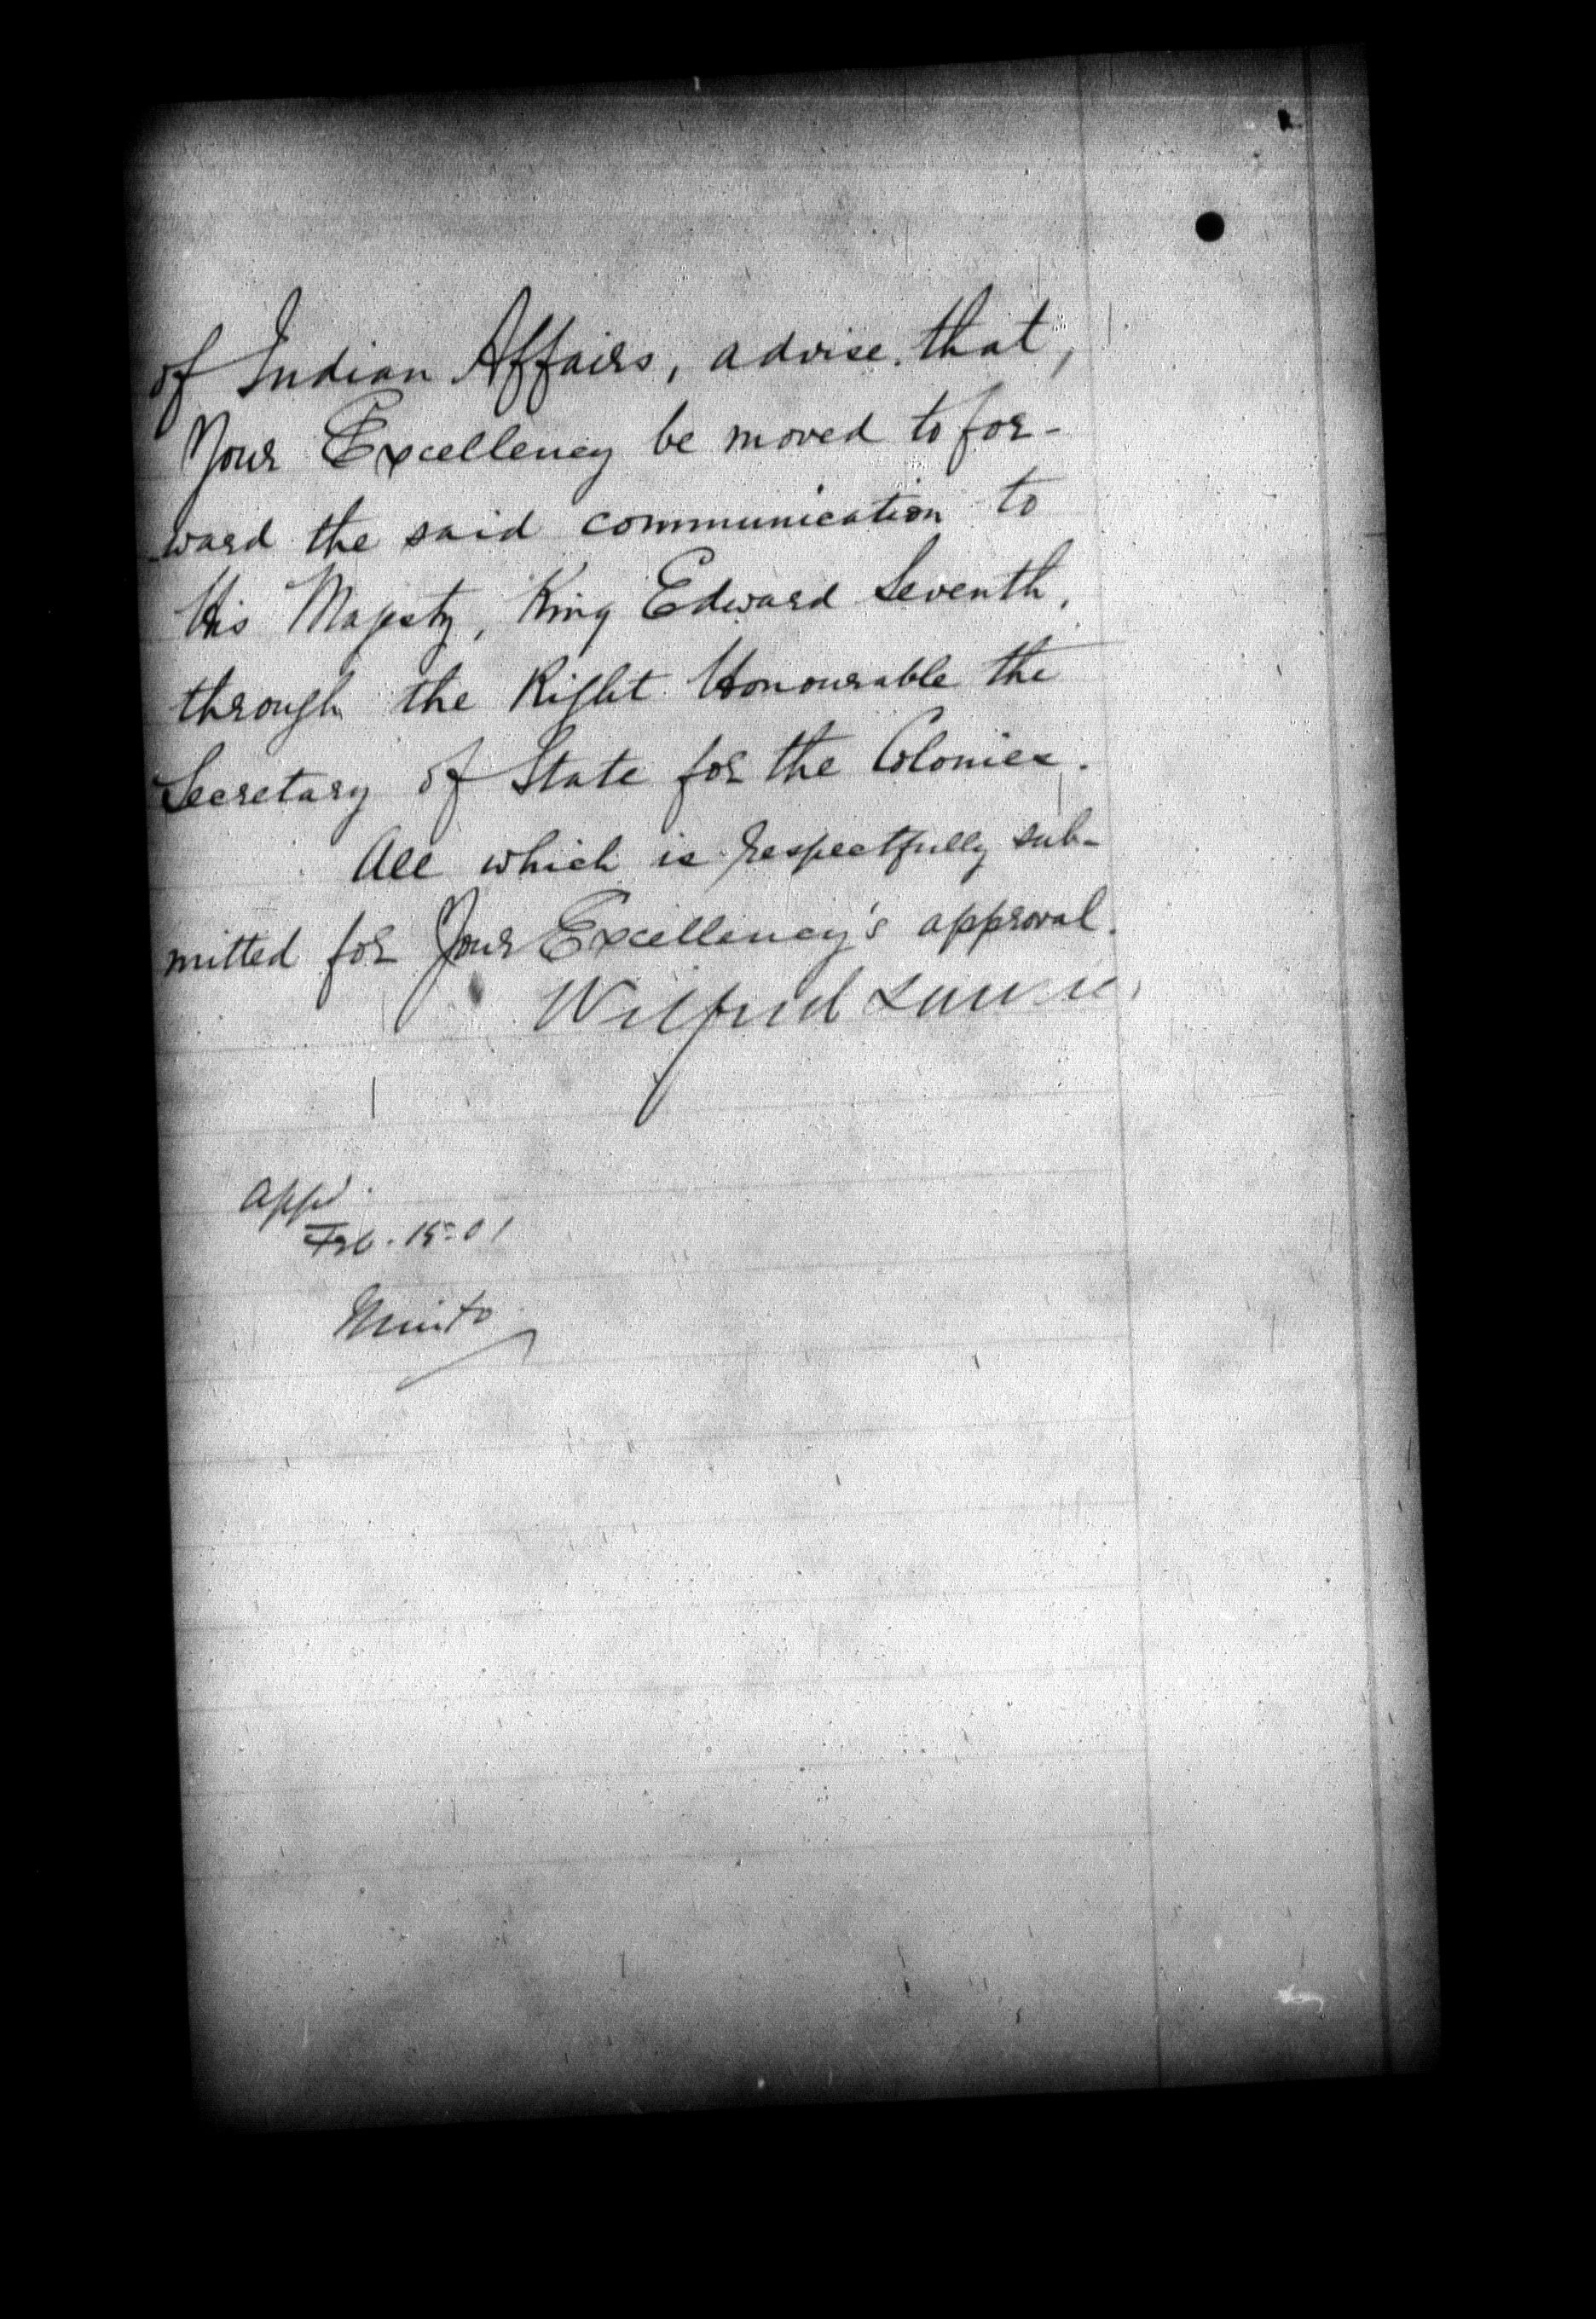 of Indian Affairs, advise that,
Your Excellency be moved to for-
-ward the said communication to
His Majesty, King Edward Seventh,
through the Right Honourable the
Secretary of State for the Colonies.
All which is respectfully sub-
mitted for Your Excellency's approval.
Wilfrid Laurier
appd
Feb. 15-01
Minto